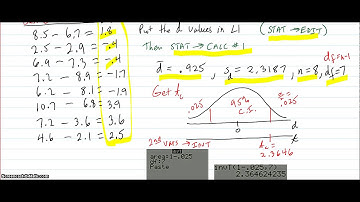 8.5 - 6.7 = 1.8
2.5 - 2.9 = -.4
6.9 - 7.3 = -.4
7.2 - 8.9 = -1.7
6.2 - 8.1 = -1.9
10.7 - 6.8 = 3.9
7.2 - 3.6 = 3.6
4.6 - 2.1 = 2.5
Put the d values in L1 (STAT → EDIT)
Then STAT → CALC #1
df=n-1
d̄ = .925, s_d = 2.3187, n=8, df=7
Get t_c
.025 95% C.I. α = .025
0 d
t
t_c = 2.3646
2nd VARS → INVT
area:1-.025
Paste
invT(1-.025,7)
2.364624235